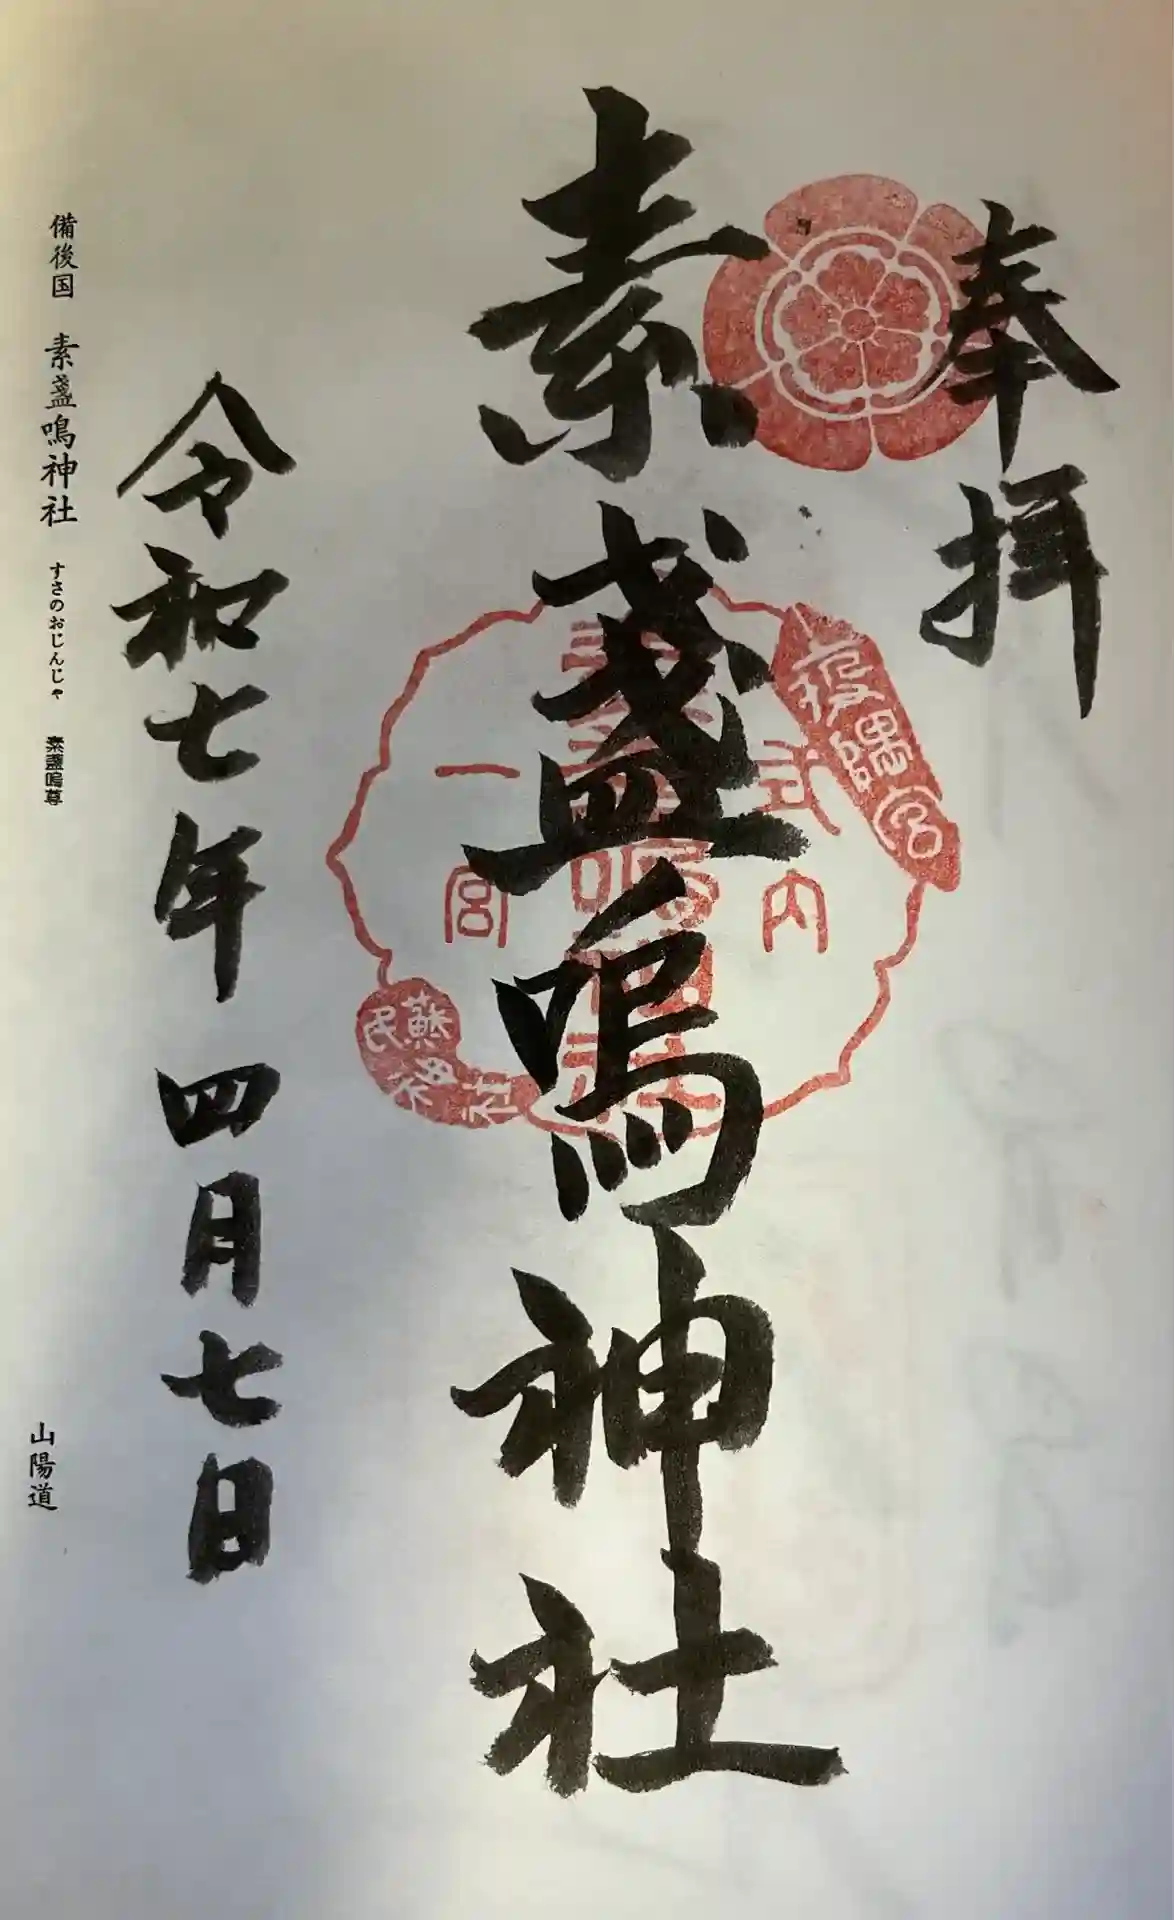 奉拝
素盞嗚神社
疫隅宮
式内
素盞嗚神社
一宮
蘇民神社
令和七年四月七日
備後国 素盞嗚神社 すさのおじんじゃ 素盞嗚尊
山陽道